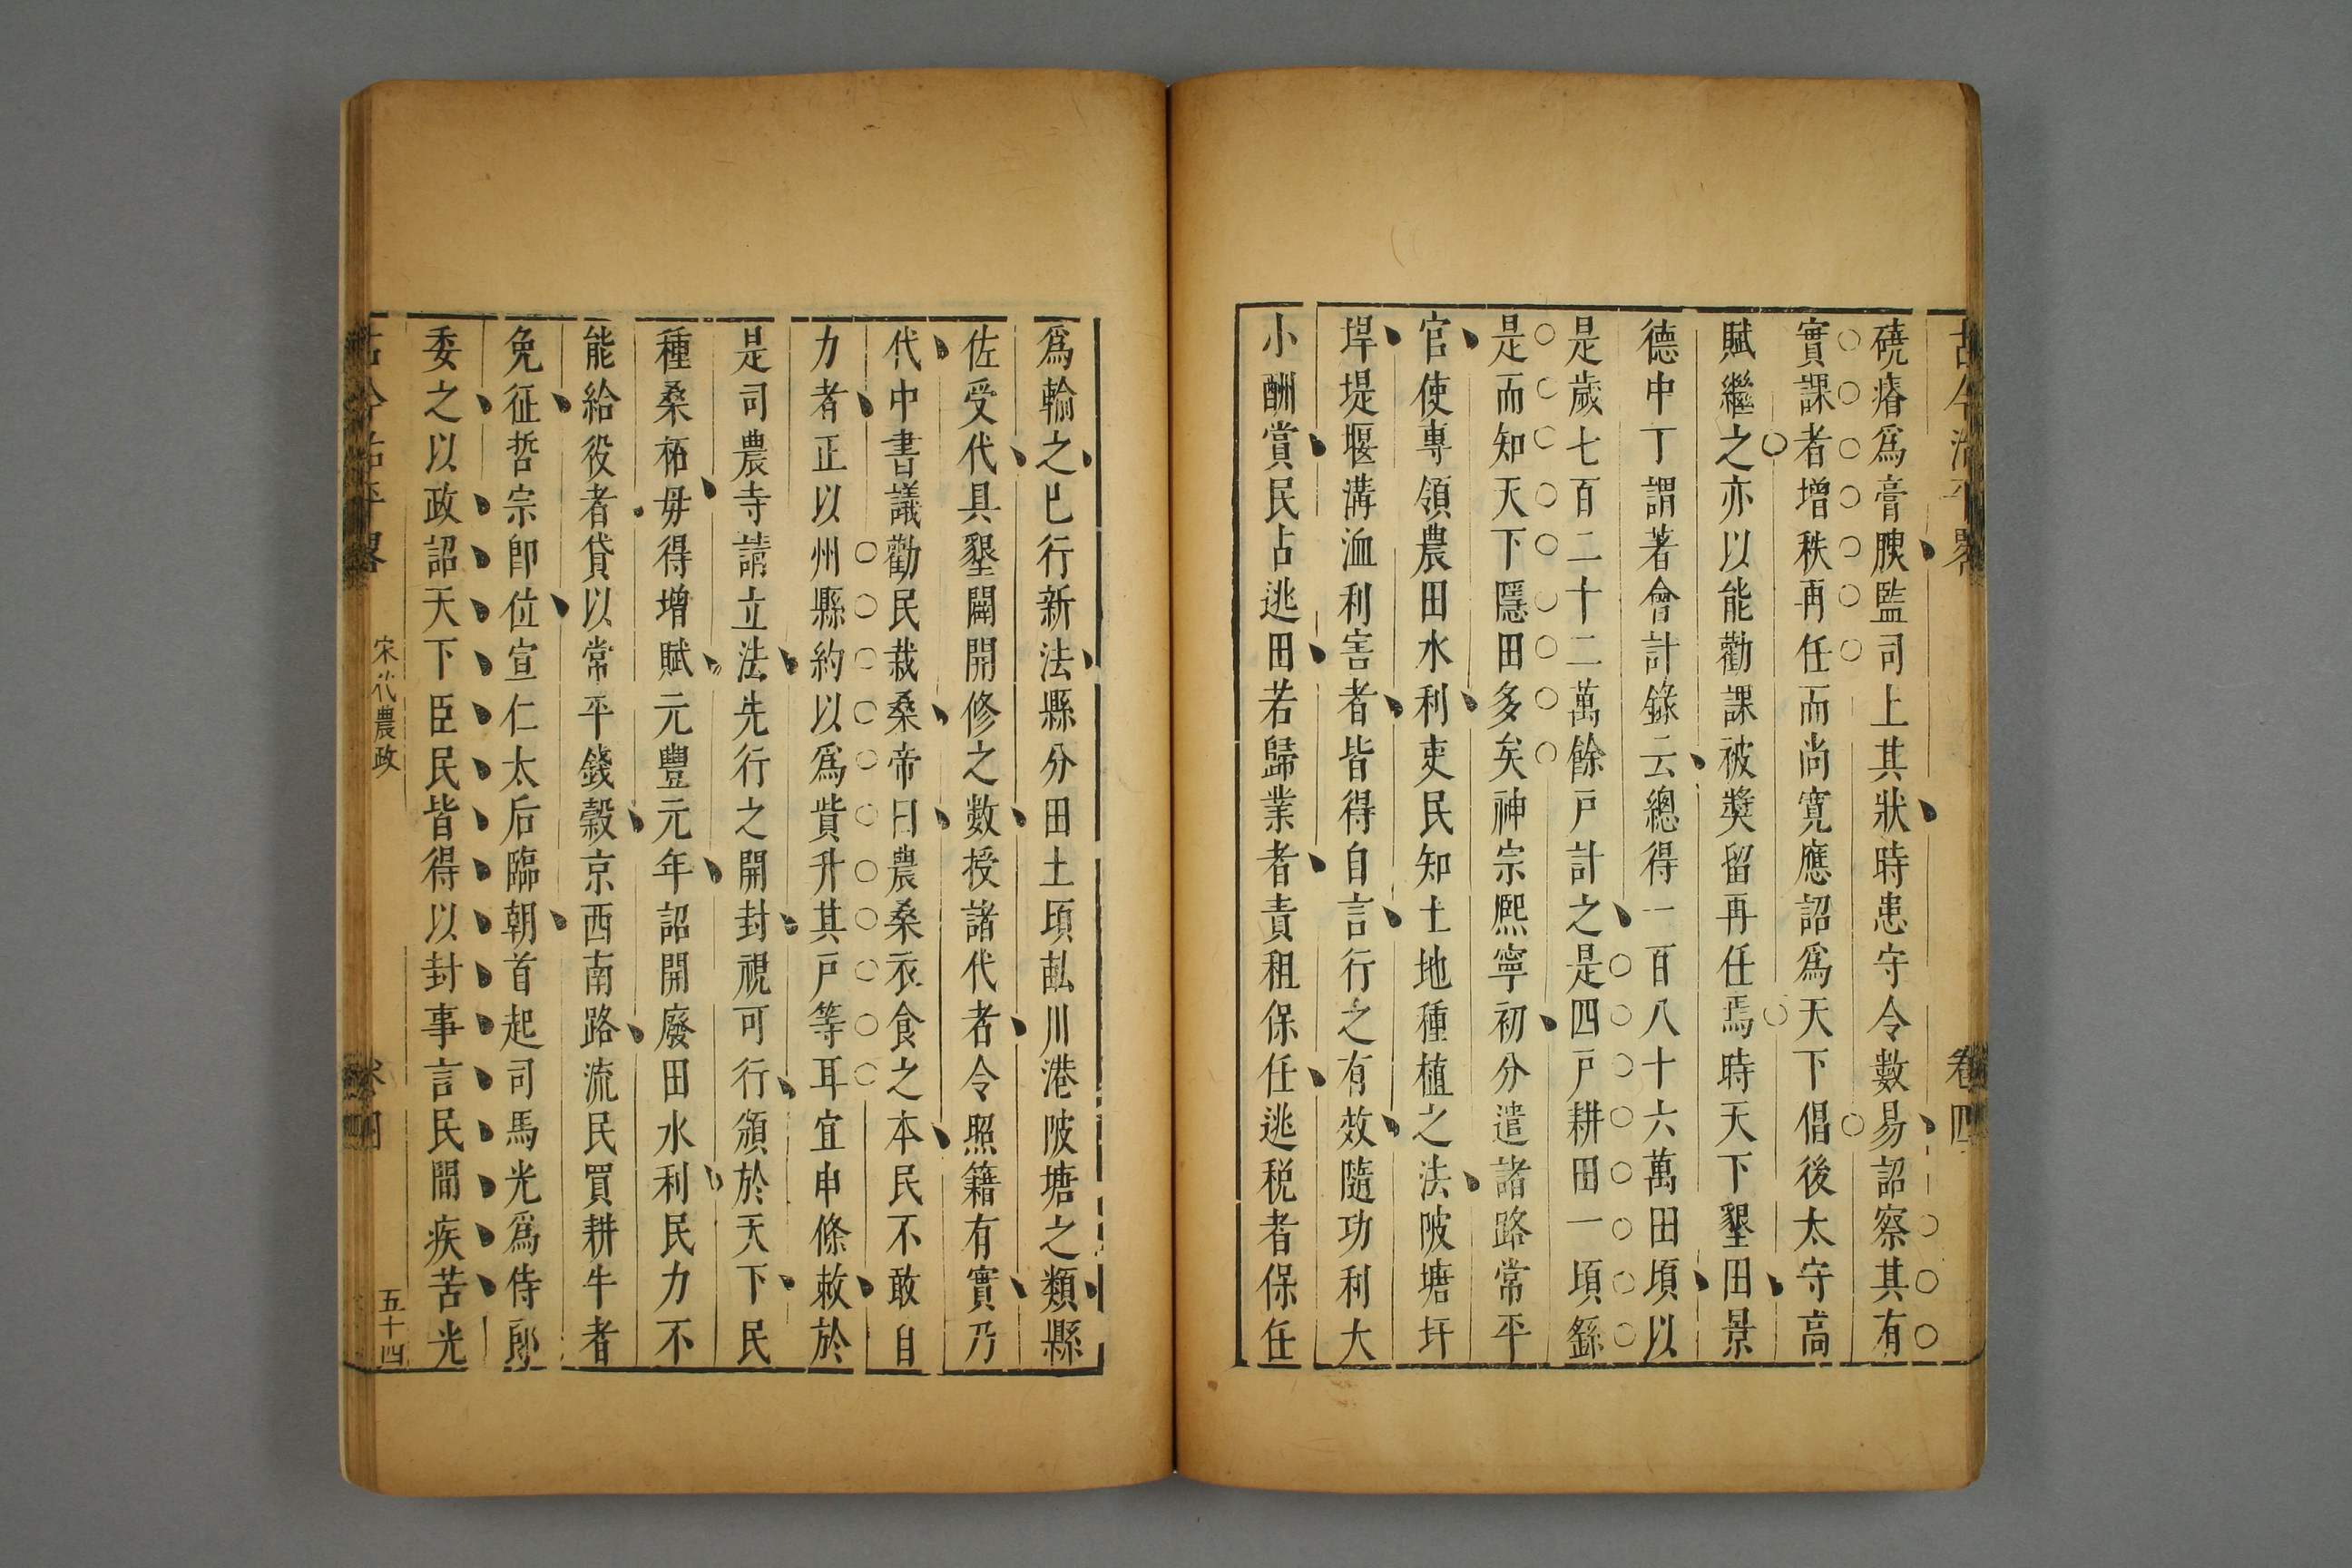 古今治平畧
卷四
磽瘠爲膏腴監司上其狀時患守令數易詔察其有
實課者增秩再任而尚寬應詔爲天下倡後太守高
賦繼之亦以能勸課被獎留再任焉時天下墾田景
德中丁謂著會計錄云總得一百八十六萬田頃以
是歲七百二十二萬餘戸計之是四戸耕田一頃繇
是而知天下隱田多矣神宗熈寧初分遣諸路常平
官使專領農田水利吏民知土地種植之法陂塘圩
垾堤堰溝洫利害者皆得自言行之有效隨功利大
小酬賞民占逃田若歸業者責租保任逃税者保任
爲輪之已行新法縣分田土頃畝川港陂塘之類縣
佐受代具墾闢開修之數授諸代者令照籍有實乃
代中書議勸民栽桑帝曰農桑衣食之本民不敢自
力者正以州縣約以爲貲升其戸等耳宜申條敕於
是司農寺請立法先行之開封視可行頒於天下民
種桑柘毋得增賦元豐元年詔開廢田水利民力不
能給役者貸以常平錢穀京西南路流民買耕牛者
免征哲宗卽位宣仁太后臨朝首起司馬光爲侍郎
委之以政詔天下臣民皆得以封事言民間疾苦光
古今治平畧
宋代農政
卷四
五十四